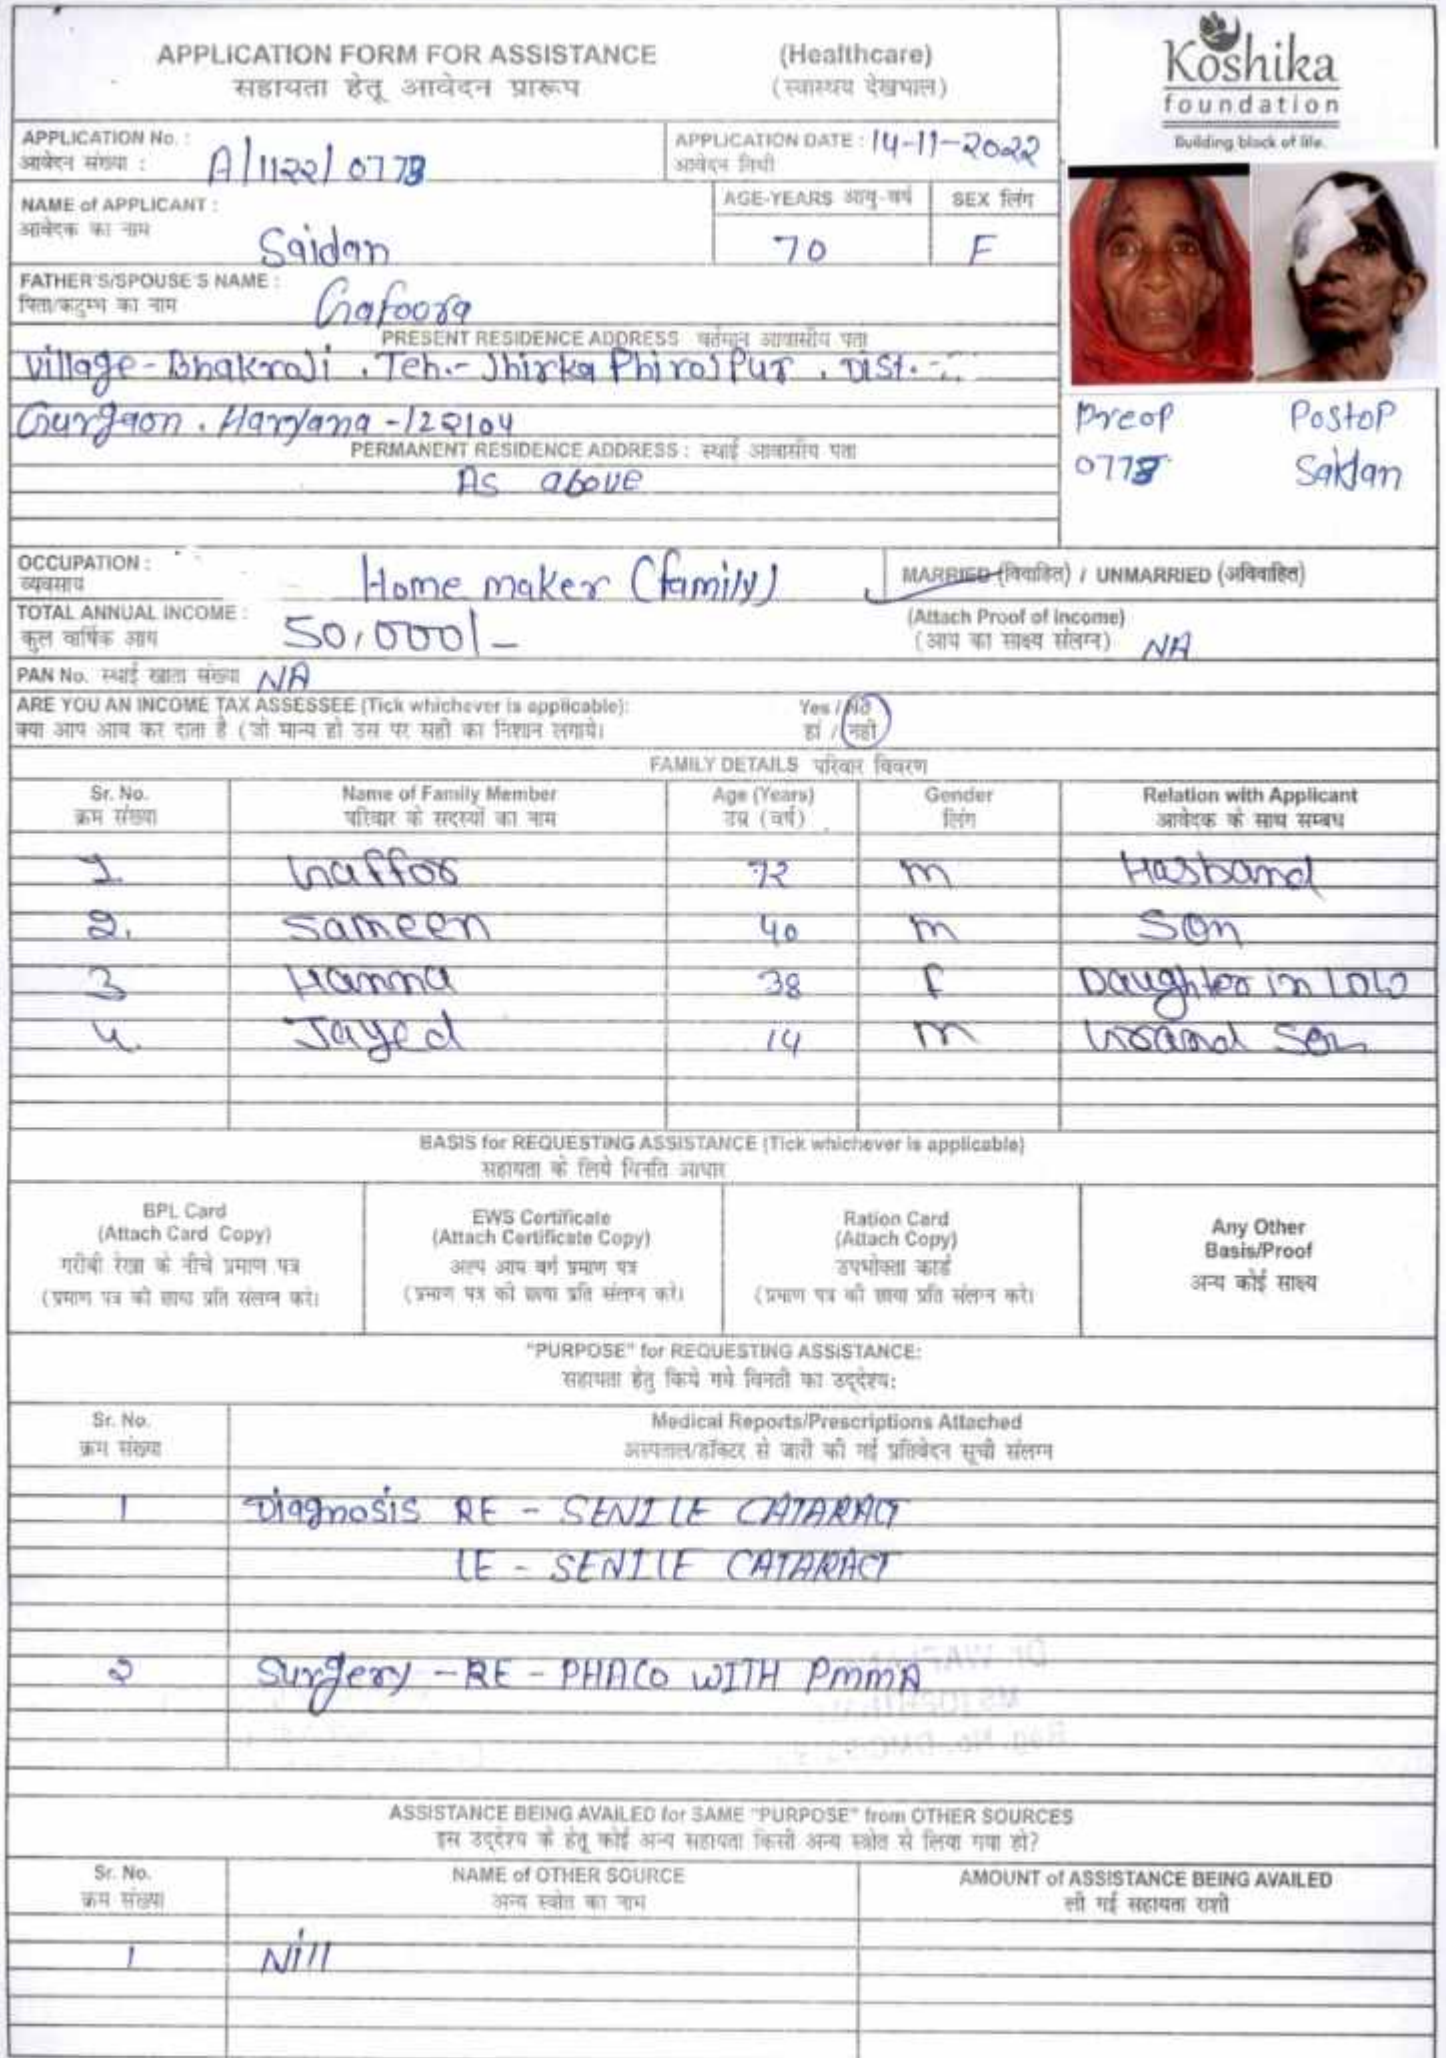 APPLICATION FORM FOR ASSISTANCE (Healthcare)
सहायता हेतू आवेदन प्रारूप (स्वास्थय देखभाल)
Koshika
foundation
Building block of life.
APPLICATION No. :
आवेदन संख्या : A/1122/0773
APPLICATION DATE : 14-11-2022
आवेदन तिथी
NAME of APPLICANT :
आवेदक का नाम Saidan
AGE-YEARS आयु-वर्ष
70
SEX लिंग
F
FATHER'S/SPOUSE'S NAME :
पिता/कटुम्भ का नाम Gafoora
PRESENT RESIDENCE ADDRESS वर्तमान आवासीय पता
Village - Bhakroji . Teh.- Jhirka Phirojpur . Dist. -
Gurgaon . Haryana - 122104
PERMANENT RESIDENCE ADDRESS : स्थाई आवासीय पता
As above
Preop Postop
0773 Saidan
OCCUPATION :
व्यवसाय Home maker (family)
MARRIED (विवाहित) / UNMARRIED (अविवाहित)
TOTAL ANNUAL INCOME :
कुल वार्षिक आय 50,000/-
(Attach Proof of Income)
(आय का साक्ष्य संलग्न) NA
PAN No. स्थाई खाता संख्या NA
ARE YOU AN INCOME TAX ASSESSEE (Tick whichever is applicable): Yes / No
क्या आप आय कर दाता है (जो मान्य हो उस पर सही का निशान लगाये। हां / नही
FAMILY DETAILS परिवार विवरण
Sr. No. Name of Family Member Age (Years) Gender Relation with Applicant
क्रम संख्या परिवार के सदस्यों का नाम उम्र (वर्ष) लिंग आवेदक के साथ सम्बध
1 Gaffor 72 M Hasband
2. Sameen 40 M Son
3 Hanna 38 F Daughter in Law
4. Jayed 14 M Grand Son
BASIS for REQUESTING ASSISTANCE (Tick whichever is applicable)
सहायता के लिये विनति आधार
BPL Card
(Attach Card Copy)
गरीबी रेखा के नीचे प्रमाण पत्र
(प्रमाण पत्र की छाया प्रति संलग्न करे।
EWS Certificate
(Attach Certificate Copy)
अल्प आय वर्ग प्रमाण पत्र
(प्रमाण पत्र की छाया प्रति संलग्न करे।
Ration Card
(Attach Copy)
उपभोक्ता कार्ड
(प्रमाण पत्र की छाया प्रति संलग्न करे।
Any Other
Basis/Proof
अन्य कोई साक्ष्य
"PURPOSE" for REQUESTING ASSISTANCE:
सहायता हेतु किये गये विनती का उद्देश्य:
Sr. No. Medical Reports/Prescriptions Attached
क्रम संख्या अस्पताल/डॉक्टर से जारी की गई प्रतिवेदन सूची संलग्न
1 Diagnosis RE - SENILE CATARACT
LE - SENILE CATARACT
2 Surgery - RE - PHACO WITH PMMA
ASSISTANCE BEING AVAILED for SAME "PURPOSE" from OTHER SOURCES
इस उद्देश्य के हेतू कोई अन्य सहायता किसी अन्य स्त्रोत से लिया गया हो?
Sr. No. NAME of OTHER SOURCE AMOUNT of ASSISTANCE BEING AVAILED
क्रम संख्या अन्य स्त्रोत का नाम ली गई सहायता राशी
1 Nill